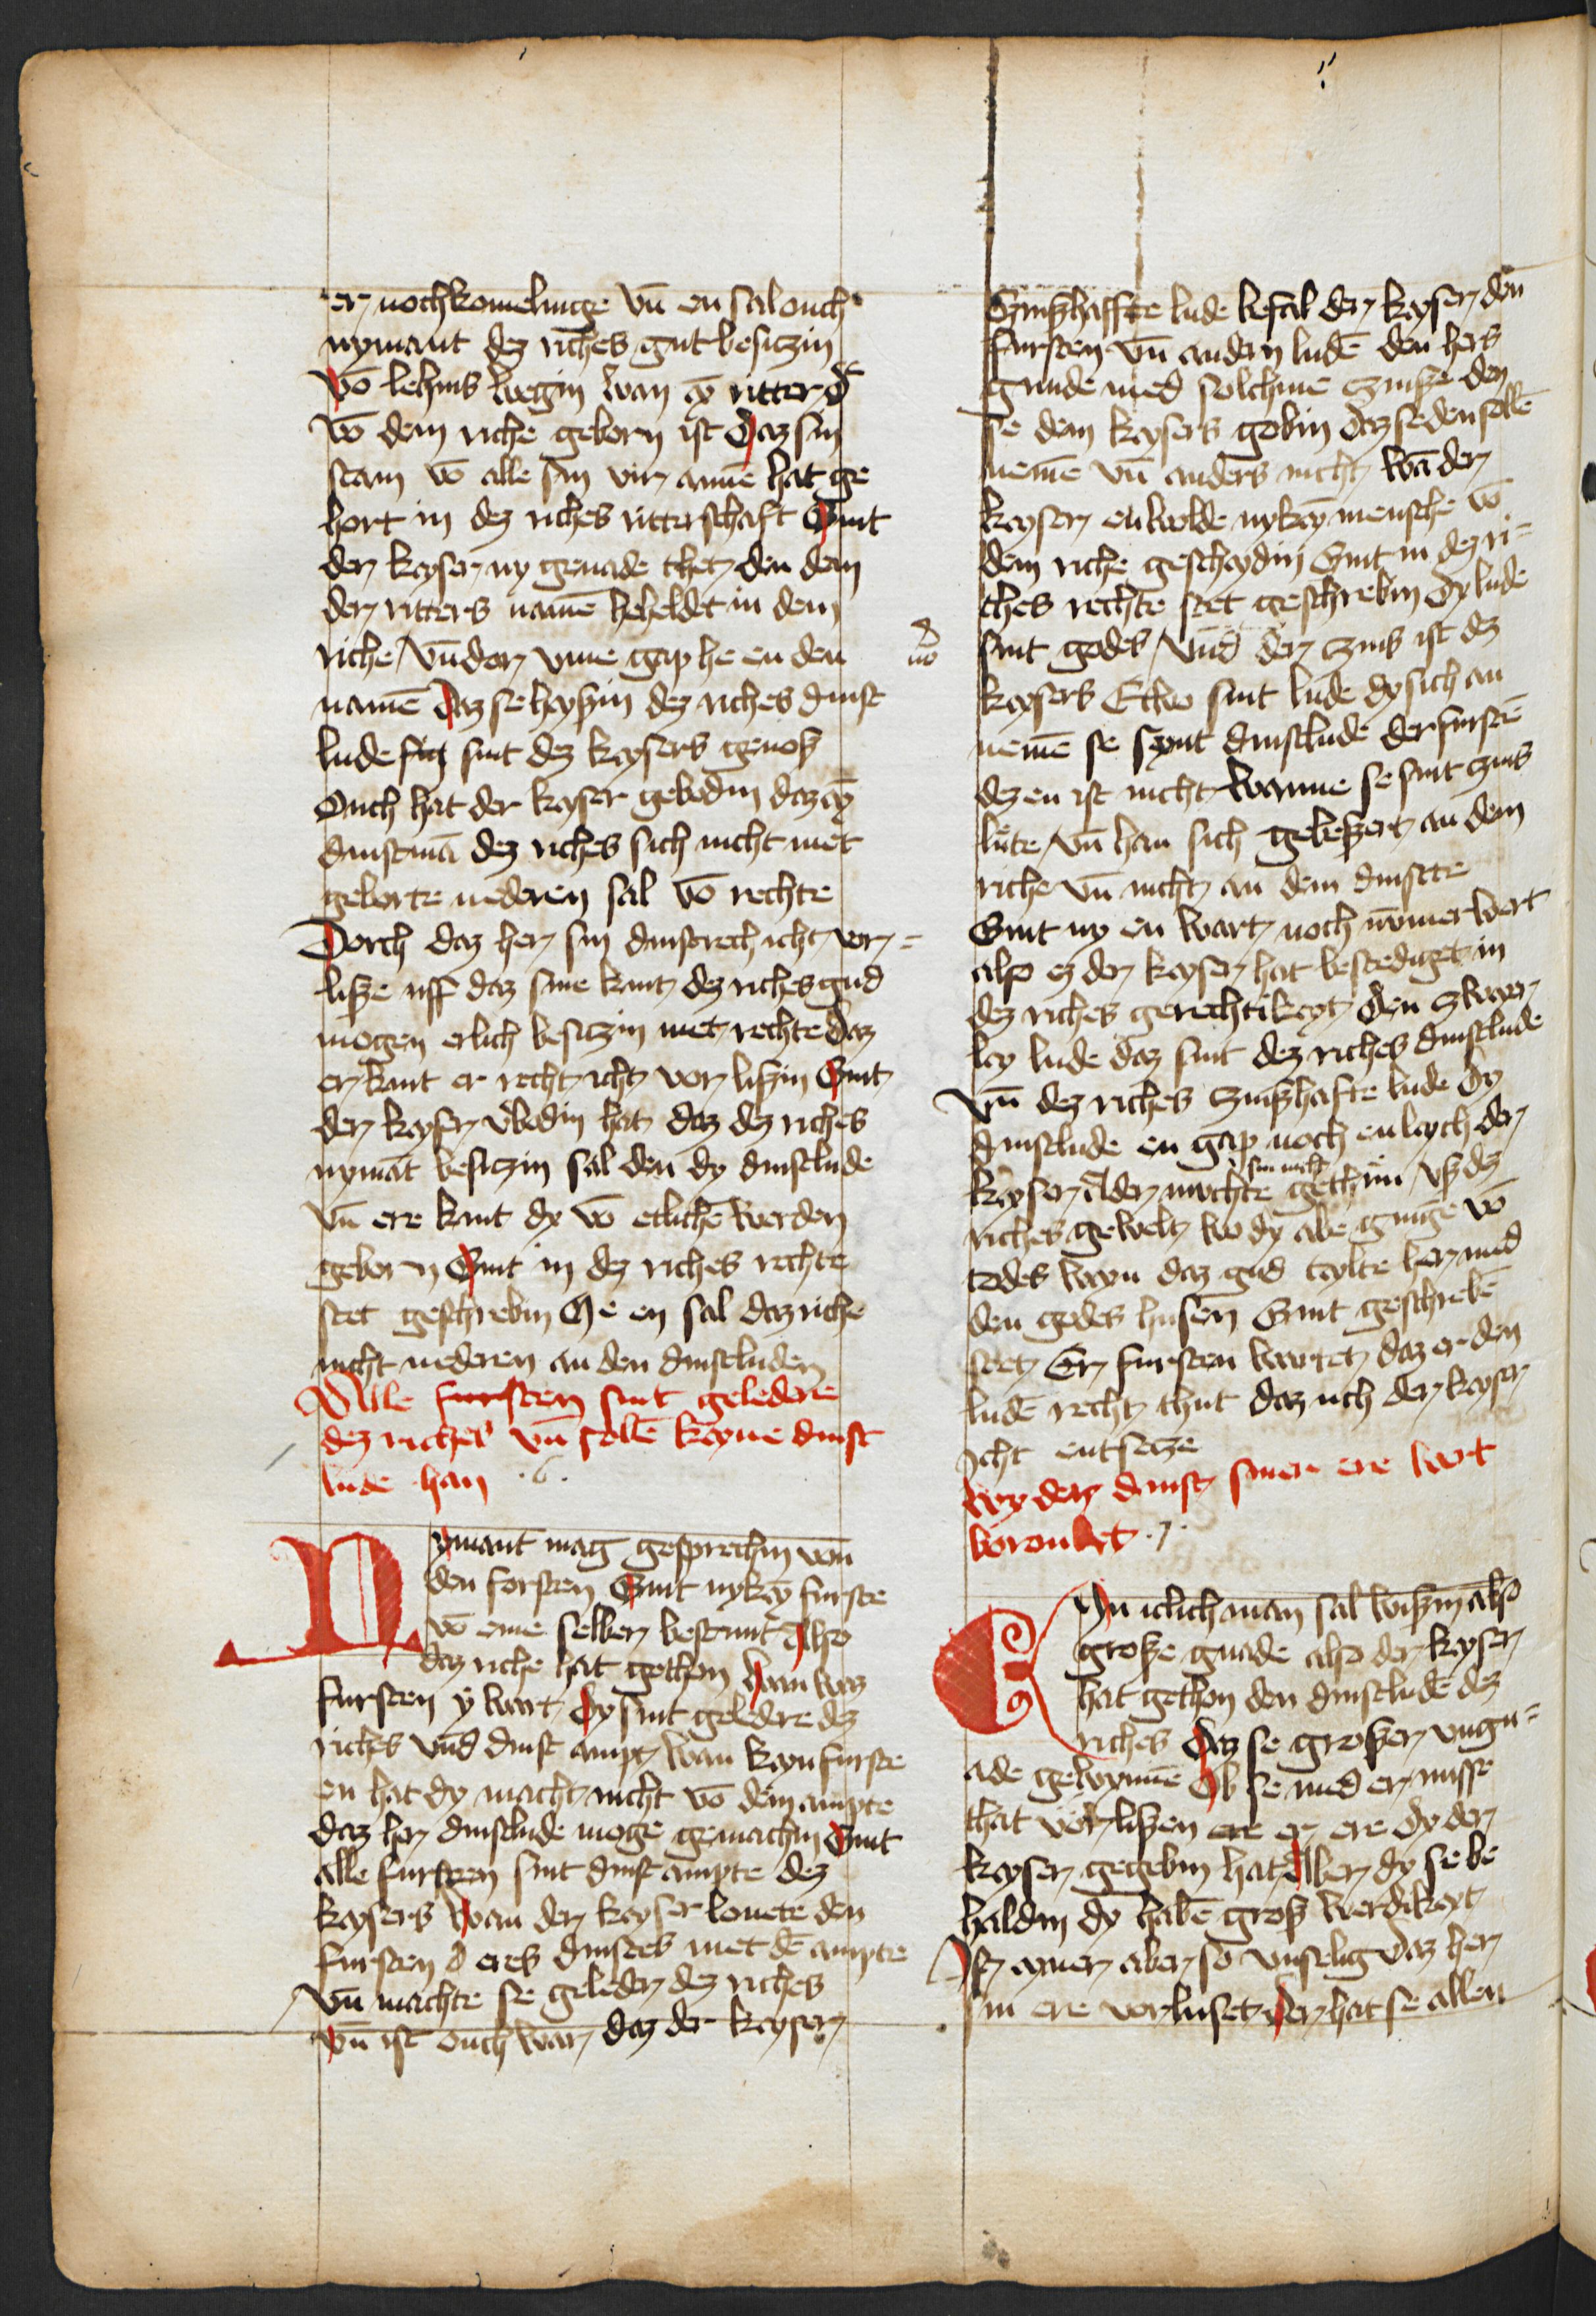 er nochkomelinge vn̄ en sal ouch
nymant dez riches gut besiczin
vō lehins wegin wan eȳ ritter d'
vō dem riche geborn ist Daz sin
stam vō alle sin vir anne hat ge
hort in dez riches ritterschaft Sint
der keyser ny genade thet den dem
der ritters namē beheldet in dem
riche / vn̄ dor vme gap he en den
namē Daz se heyszin dez riches dinst
lude sint dez keysers genosz
Ouch hat der keyser gebodin daz eȳ
dinstmā dez riches sich nicht met
geborte nederen sal vō rechte
Dorch daz her sin dinstrech icht vor=
lisze uff daz sine kint dez riches gud
mogen erlich besiczin met rechte Daz
er kint er recht icht vorliszin Sint
der keyser vbodin hat daz dez riches
nymāt besiczin sal den dy dinstlude
vn̄ ere kint dy vō etlichē werden
geborn Sint in dez riches rechte
stet geschrebin He en sal daz riche
nicht nederen an den dinstluden
Alle fursten sint geledere
dez riches vn̄ sollē keyne dinst
lude han .6.
Nymant mag gesprechin von
den forsten Sint nykeȳ furste
vō eme selben bestunt Also
daz riche hat gethon Wan waz
fursten y wart Dy sint geledere dez
riches vnd dinst ampt wan keyn furste
en hat dy macht nicht vō dem ampte
daz her dinstlude moge gemachin Sint
alle fursten sint dinst ampte dez
keysers Wan der keyser lonete den
fursten d' eres dinstes met dē ampte
vn̄ machte se geleder dez riches
vn̄ ist ouch war daz der keyser
Czinszhafftte lude befal der keyser den
fursten vn̄ andern ludē den hers
gunde med solchme czinsze den
se dem keysers gebin Daz se den sollē
nemē vn̄ anders nicht wā der
keyser en wolde nykeȳ mensche vō
dem riche gescheydin Sint in dez ri=
ches rechte stet geschrebin Dy lude
sint godes / vnd der czins ist dez
keysers Etwo sint lude dy sich an
nemē se synt dinstlude der furstē
dez en ist nicht wanne se sint czins
lute / vn̄ han sich gebeszert an dem
riche vn̄ nicht an dem dinstte
Sint ny en wart noch nūmer wert
also ez der keyser hat bestediget in
dez riches gerechtikeyt den czweyer
ley lude daz sint dez riches dinstlude
vn̄ dez riches czinszhafte lude Dy
dinstlude en gap noch en leych der
keyser Ader mochte sin nicht gethūn vsz dez
riches gewelt wo dy abe ginge vō
todes weyn daz gud teylte her med
den godes husen Sint geschrebē
stet Er fursten wartet daz er den
ludē recht thut daz uch der keyser
icht entsecze
Wy der dinst siner ere wert
beroubet .7.
Eyn iclich man sal wiszin also
grosze gnade also der keyser
hat gethon den dinstludē dez
riches Daz se groszer vngn=
ade gewynnē Ob se med er misse
that vorliszen ere er ere Dy der
keyser gegebin hat Aber dy se be
haldin dy habē grosz werdikeyt
Ist eyner aber so vnselig Daz her
sin ere vorluset Der hat se allen